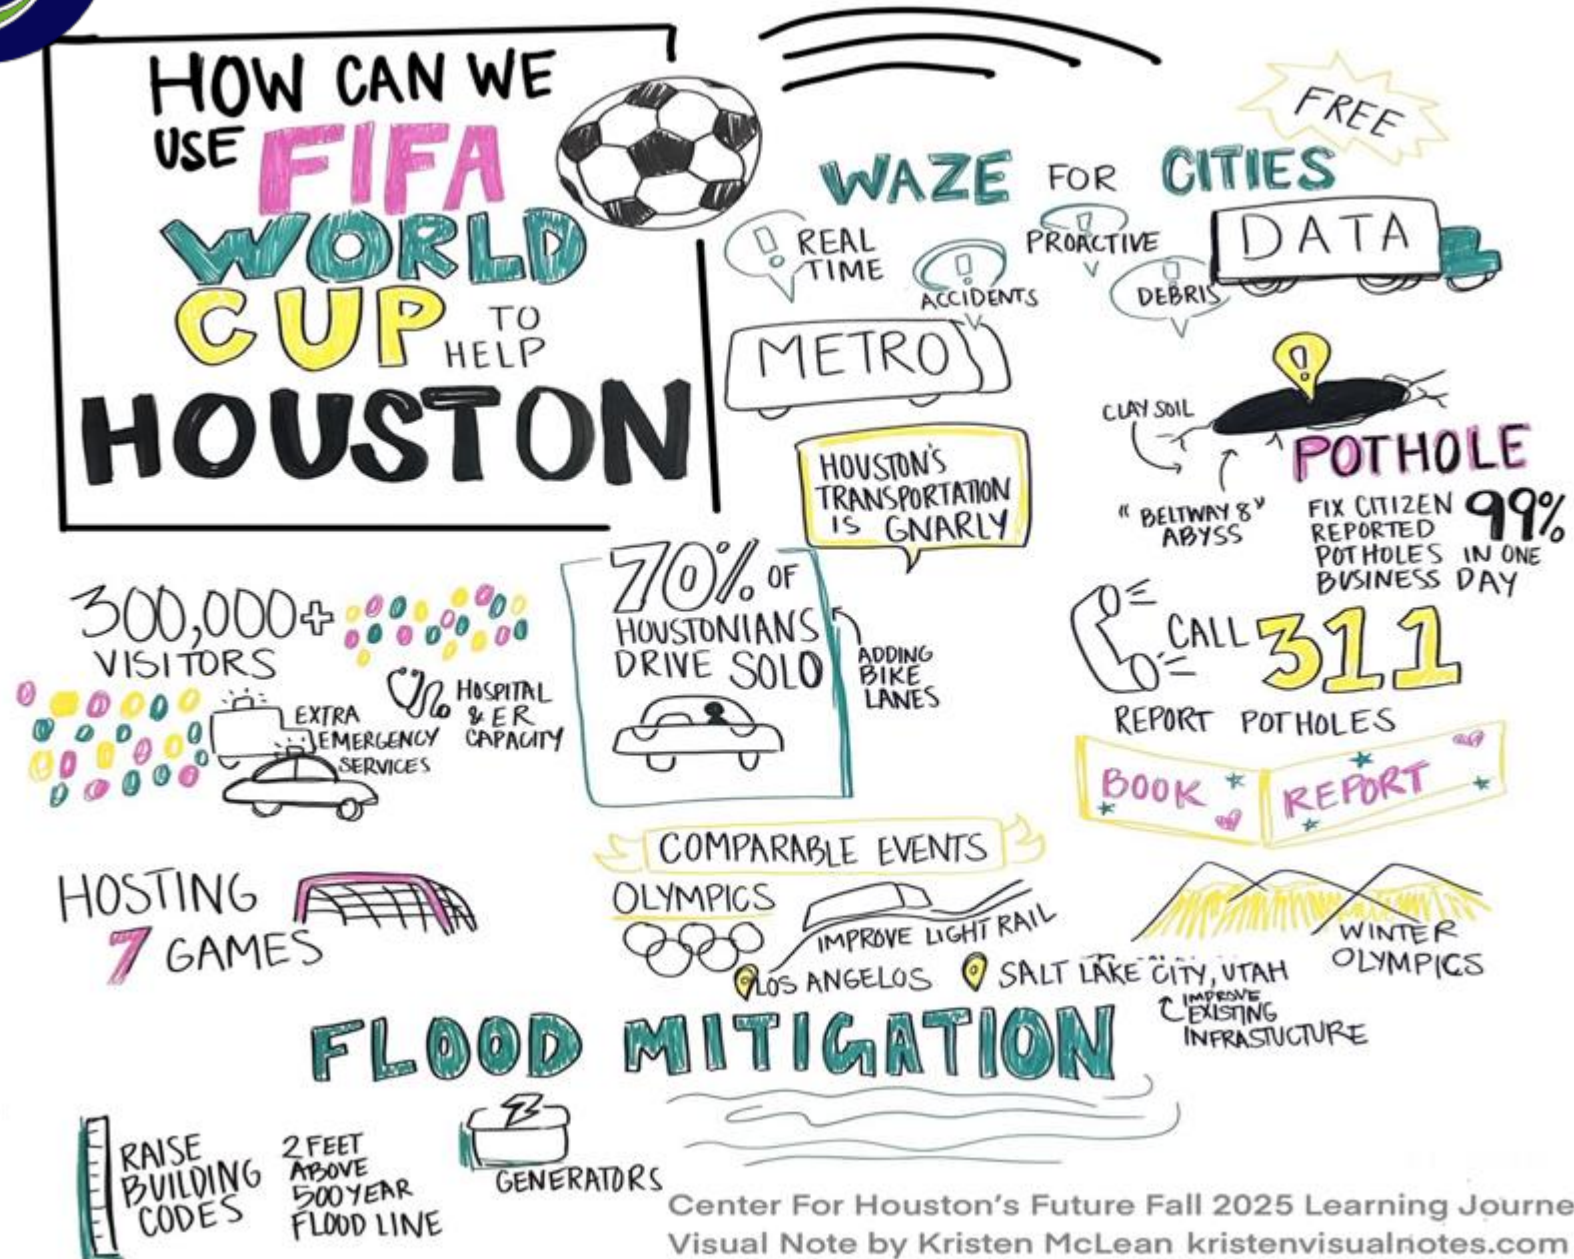 HOW CAN WE
USE FIFA
WORLD
CUP TO
HELP
HOUSTON
FREE
WAZE FOR CITIES
REAL
TIME
ACCIDENTS
PROACTIVE
DEBRIS
DATA
METRO
HOUSTON'S
TRANSPORTATION
IS GNARLY
CLAY SOIL
"BELTWAY 8"
ABYSS
POTHOLE
FIX CITIZEN 99%
REPORTED
POTHOLES IN ONE
BUSINESS DAY
300,000+
VISITORS
EXTRA
EMERGENCY
SERVICES
HOSPITAL
& ER
CAPACITY
70% OF
HOUSTONIANS
DRIVE SOLO
ADDING
BIKE
LANES
CALL 311
REPORT POTHOLES
BOOK REPORT
HOSTING
7 GAMES
COMPARABLE EVENTS
OLYMPICS
IMPROVE LIGHT RAIL
LOS ANGELOS
SALT LAKE CITY, UTAH
WINTER
OLYMPICS
IMPROVE
EXISTING
INFRASTUCTURE
FLOOD MITIGATION
RAISE
BUILDING
CODES
2 FEET
ABOVE
500 YEAR
FLOOD LINE
GENERATORS
Center For Houston's Future Fall 2025 Learning Journe
Visual Note by Kristen McLean kristenvisualnotes.com